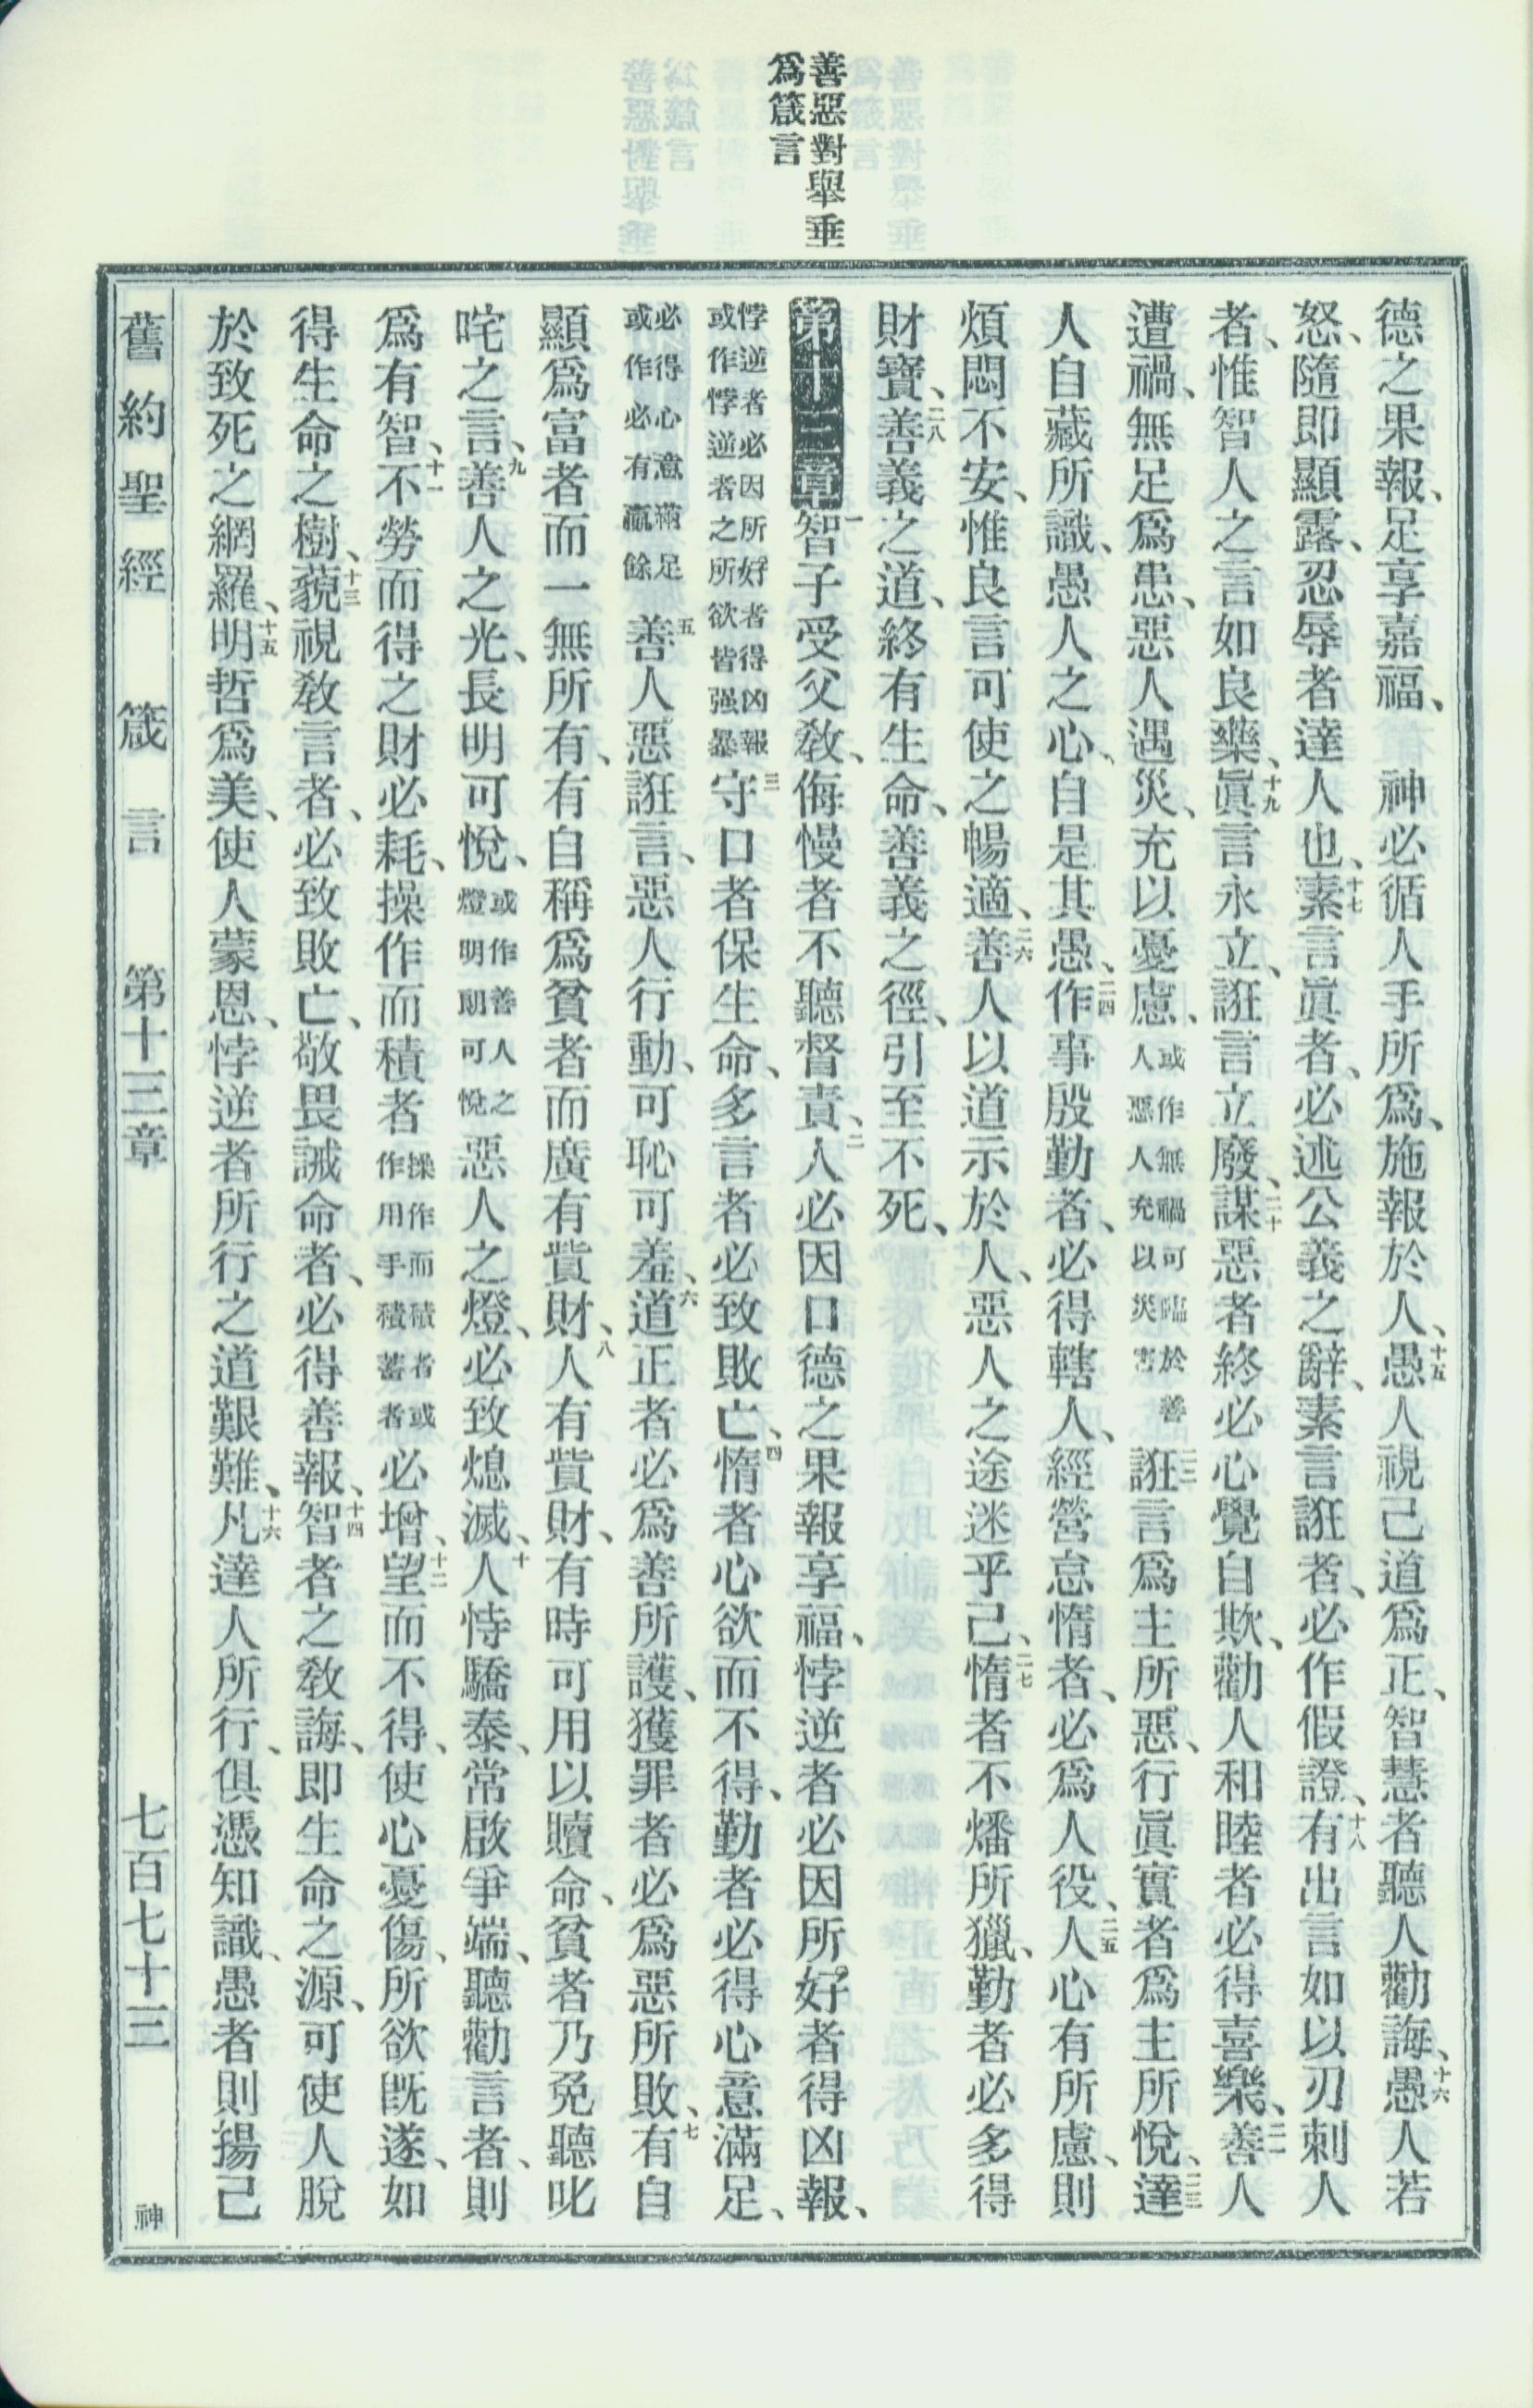 善惡對舉垂
爲箴言
德之果報、足享嘉福、 神必循人手所爲、施報於人、十五愚人視己道爲正、智慧者聽人勸誨、十六愚人若
怒、隨即顯露、忍辱者達人也、十七素言眞者、必述公義之辭、素言誑者、必作假證、十八有出言如以刃刺人
者、惟智人之言如良藥、十九眞言永立、誑言立廢、二十謀惡者終必心覺自欺、勸人和睦者必得喜樂、二一善人
遭禍、無足爲患、惡人遇災、充以憂慮、或作無禍可臨於善人惡人充以災害 二二誑言爲主所惡、行眞實者爲主所悅、二三達
人自藏所識、愚人之心、自是其愚、二四作事殷勤者、必得轄人、經營怠惰者、必爲人役、二五人心有所慮、則
煩悶不安、惟良言可使之暢適、二六善人以道示於人、惡人之途迷乎己、二七惰者不燔所獵、勤者必多得
財寶、二八善義之道、終有生命、善義之徑、引至不死、
第十三章 一智子受父敎、侮慢者不聽督責、二人必因口德之果報享福、悖逆者必因所好者得凶報、
悖逆者必因所好者得凶報或作悖逆者之所欲皆强暴 三守口者保生命、多言者必致敗亡、四惰者心欲而不得、勤者必得心意滿足、
必得心意滿足或作必有贏餘 五善人惡誑言、惡人行動、可恥可羞、六道正者必爲善所護、獲罪者必爲惡所敗、七有自
顯爲富者而一無所有、有自稱爲貧者而廣有貲財、八人有貲財、有時可用以贖命、貧者乃免聽叱
咤之言、九善人之光、長明可悅、或作善人之燈明朗可悅 惡人之燈、必致熄滅、十人恃驕泰、常啟爭端、聽勸言者、則
爲有智、十一不勞而得之財必耗、操作而積者操作而積者或作用手積蓄者 必增、十二望而不得、使心憂傷、所欲旣遂、如
得生命之樹、十三藐視敎言者、必致敗亡、敬畏誡命者、必得善報、十四智者之敎誨、即生命之源、可使人脫
於致死之網羅、十五明哲爲美、使人蒙恩、悖逆者所行之道艱難、十六凡達人所行、俱憑知識、愚者則揚己
舊約聖經 箴言 第十三章 七百七十三 神